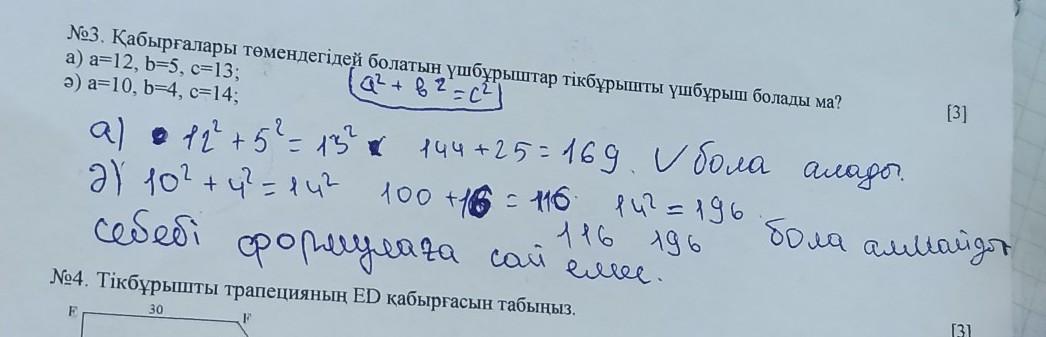 №3. Қабырғалары төмендегідей болатын үшбұрыштар тікбұрышты үшбұрыш болады ма?
а) a=12, b=5, c=13;
ә) a=10, b=4, c=14;
[3]
a² + b² = c²
а) 12² + 5² = 13² 144 + 25 = 169. √ бола алады.
ә) 10² + 4² = 14² 100 + 16 = 116 14² = 196
116 196 бола алмайды
себебі формулаға сай емес.
№4. Тікбұрышты трапецияның ED қабырғасын табыңыз.
[3]
E 30 F